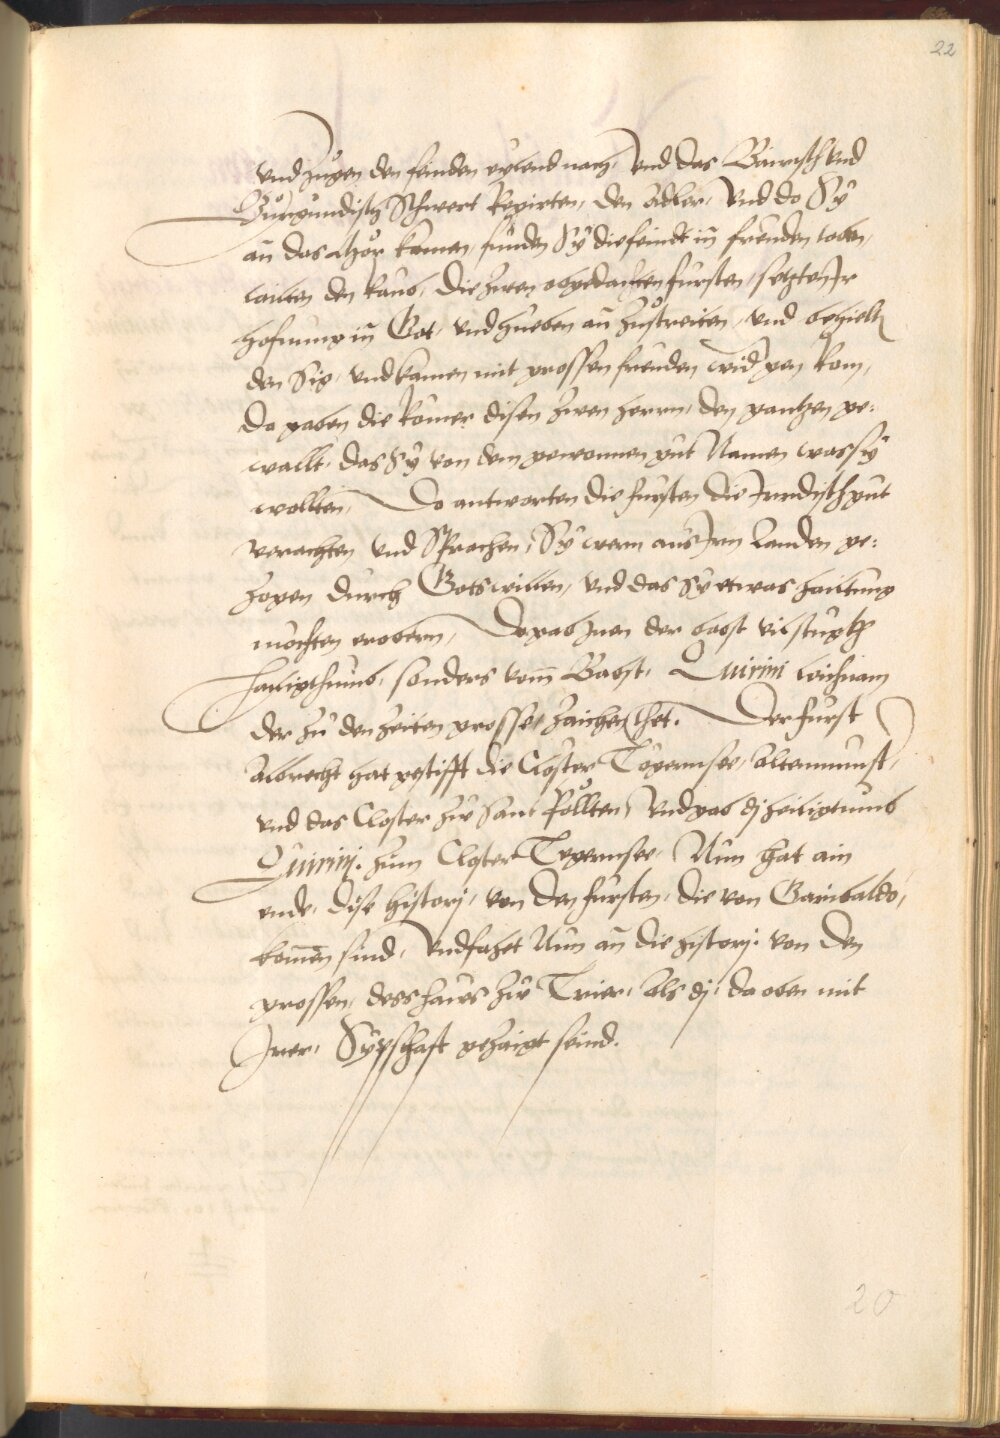 22
vnd zugen den feinden eylend nach, Vnd das Bairisch vnd
Burgundisch Schwert Regirten, den Adler, Vnd do Sÿ
an das Mhör kamen, funden Sÿ die feindt in freuden leben,
tailten den Raub, die zwen obgedachten fursten, setzten Ir
hofnung in Got, vnd hueben an zustreiten, vnd behielten
den Sig, vnd kamen mit grossen freuden wider gen Rom,
Da gaben die Römer disen zwen herrn, den gantzen ge-
wallt, das Sÿ von dem gewonnen gut Namen was sÿ
wollten, Do antworten die fursten die Irrdisch gut
verachten vnd Sprachen, Sÿ wern aus Irn Landen ge-
zogen durch Gots willen, vnd das sÿ etwas hailtung
mochten erobern, Do gab Inen der babst vil stuckh
hailigthumb, sonders vom Babst, Quirini leichnam
der zu den zeiten grosse zaichen thet. Der furst
Albrecht hat gestifft die Closter Tegernsee, Altenmunst,
vnd das Closter zue Sanct Pöllten, Vnd gab dz heiligtumb
Quirini zum Closter Tegernsee, Nun hat ain
ende, dise history, von den fursten, die von Garibaldo,
komen sind, Vnd fahet Nun an die history von den
grossen, dess haus zue Trier, als dj, da oben mit
Irer, Sypschaft gezaigt seind.
20